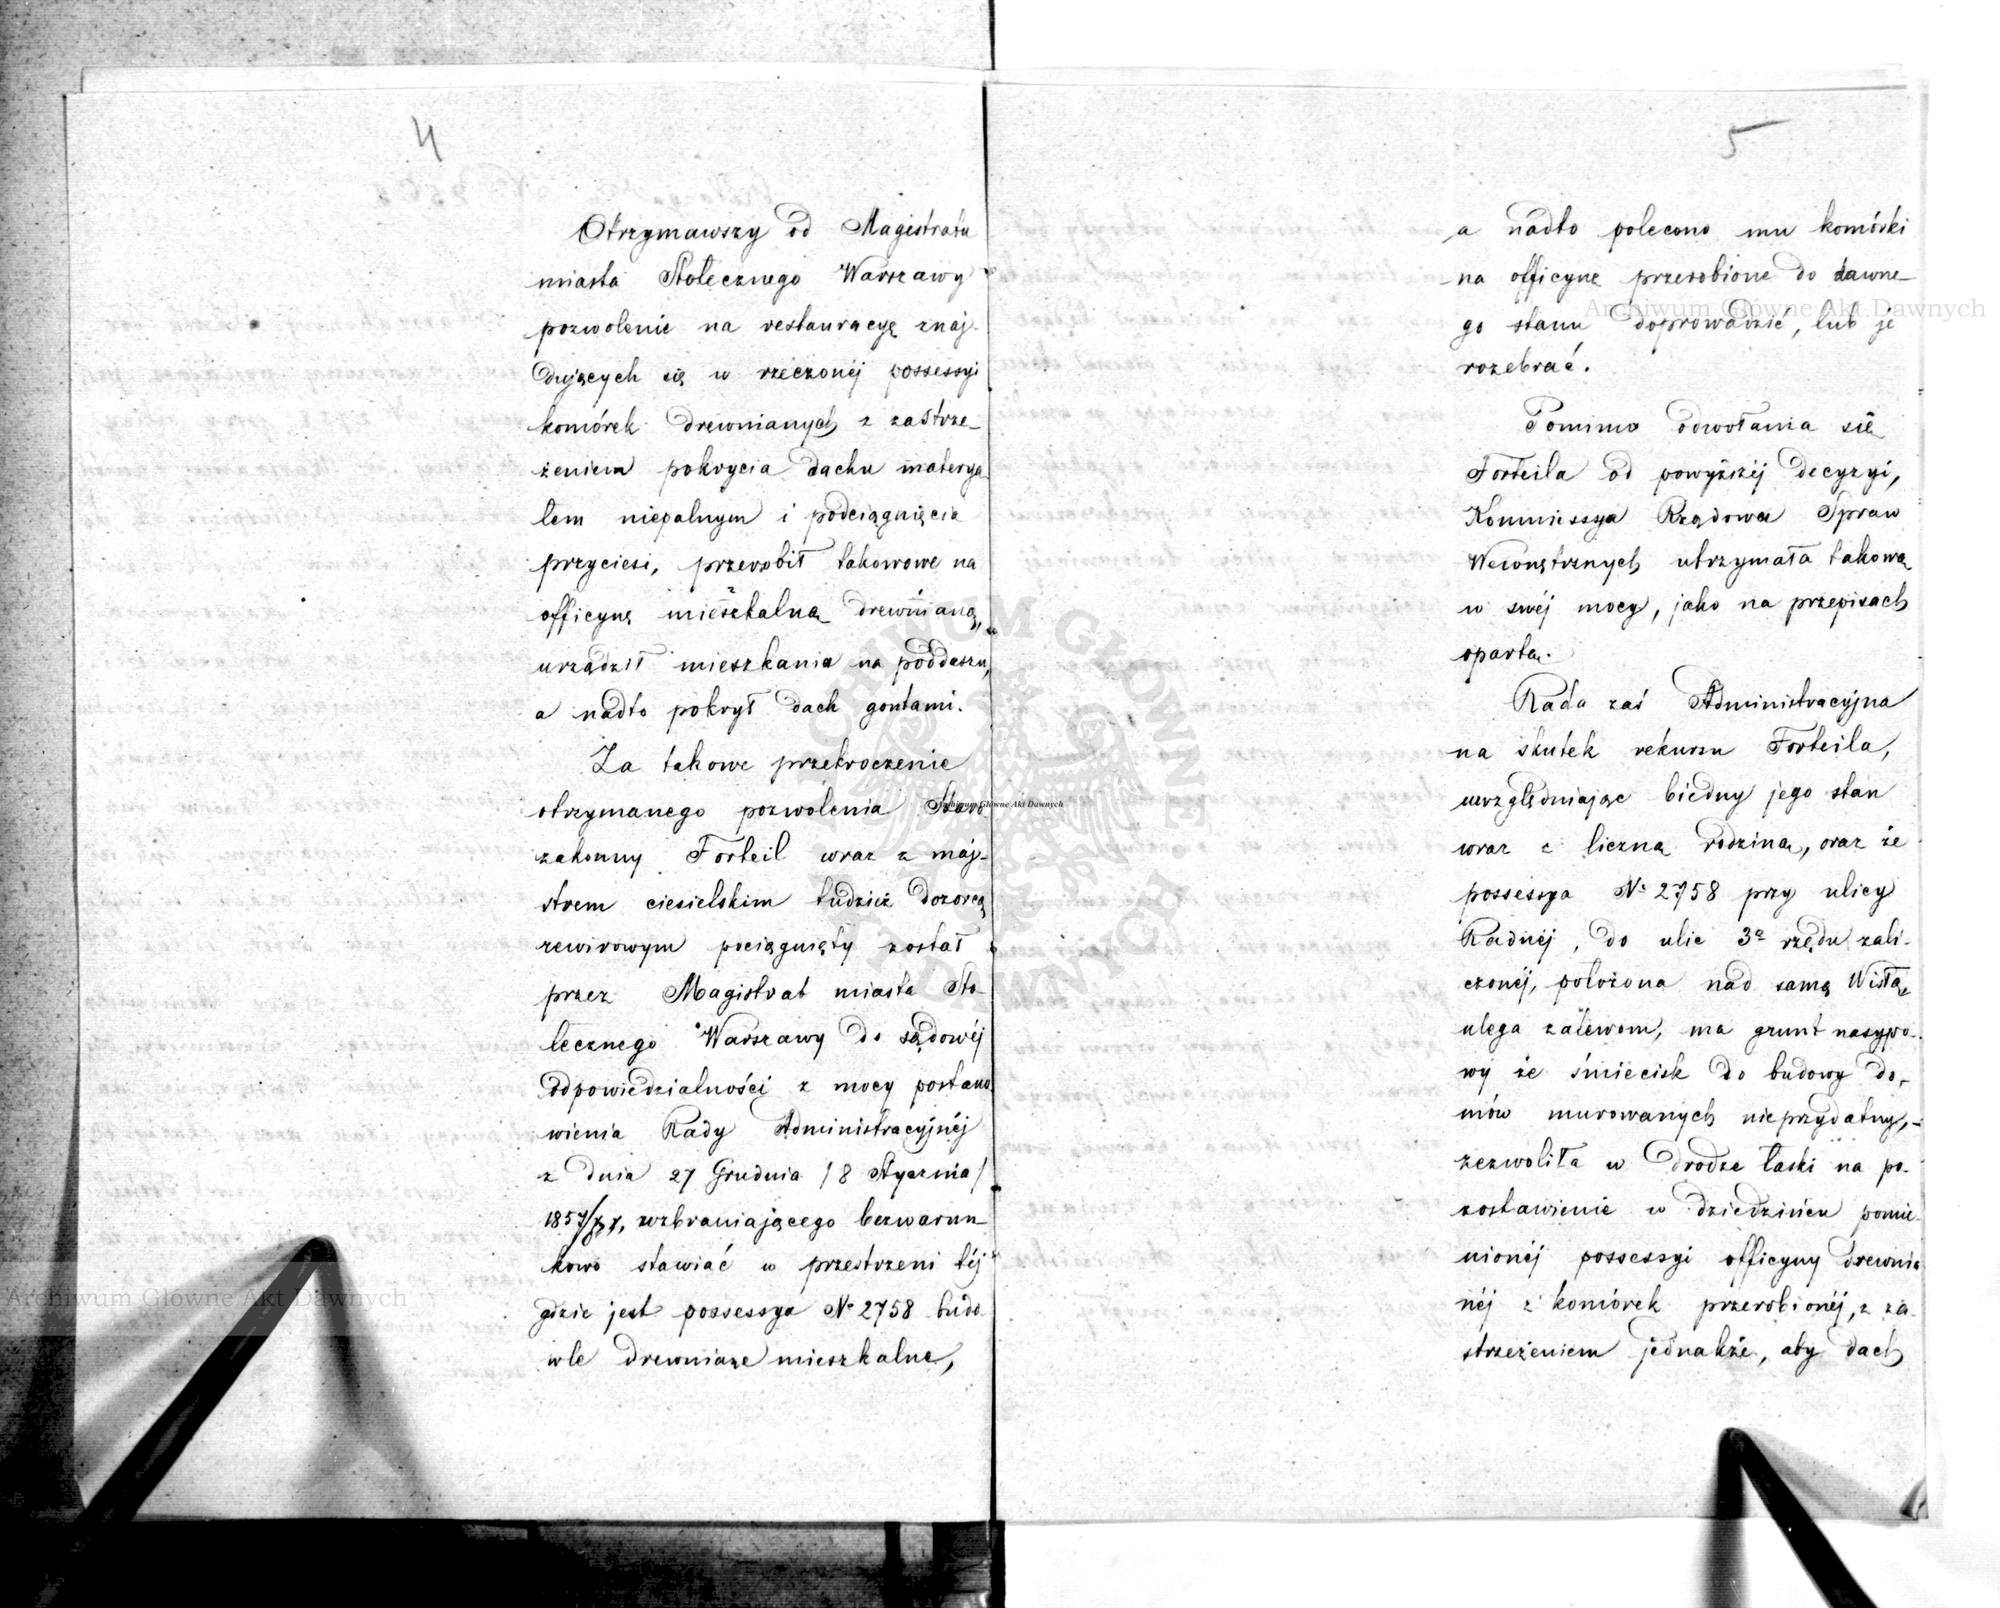 4
Otrzymawszy od Magistratu
miasta Stołecznego Warszawy
pozwolenie na restauracyę znaj-
dujących się w rzeczonéj possessyi
komórek drewnianych z zastrze-
żeniem pokrycia dachu materya-
łem niepalnym i podciągnięcia
przyciesi, przerobił takowowe na
officynę mieszkalną drewnianą,
urządził mieszkania na poddaszu,
a nadto pokrył dach gontami.
Za takowe przekroczenie
otrzymanego pozwolenia Staro-
zakonny Forteil wraz z maj-
strem ciesielskim tudzież dozorcą
rewirowym pociągnięty został
przez Magistrat miasta Sto-
łecznego Warszawy do sądowéj
odpowiedzialności z mocy postano-
wienia Rady Administracyjnéj
z dnia 27 Grudnia / 8 Stycznia /
wzbraniającego bezwarun-
kowo stawiać w przestrzeni téj
gdzie jest possessya № 2758 budo-
wle drewniane mieszkalne,
5
a nadto polecono mu komórki
na officynę przerobione do dawne-
go stanu doprowadzić, lub je
rozebrać.
Pomimo odwołania się
Forteila od powyższéj decyzyi,
Kommissya Rządowa Spraw
Wewnętrznych utrzymała takową
w swéj mocy, jako na przepisach
opartą.
Rada zaś Administracyjna
na skutek rekursu Forteila,
uwzględniając biedny jego stan
wraz z liczną rodziną, oraz że
possessya № 2758 przy ulicy
Radnéj, do ulic 3º rzędu zali-
czonéj, położona nad samą Wisłą,
ulega zalewom, ma grunt nasypo-
wy ze śmiecisk do budowy do-
mów murowanych nieprzydatny,-
zezwoliła w drodze łaski na po-
zostawienie w dziedzińcu pomie-
nionéj possessyi officyny drewnia-
néj z komórek przerobionéj, z za-
strzeżeniem jednakże, aby dach
Archiwum Główne Akt Dawnych
Archiwum Główne Akt Dawnych
Archiwum Główne Akt Dawnych
ARCHIWUM GŁÓWNE AKT DAWNYCH